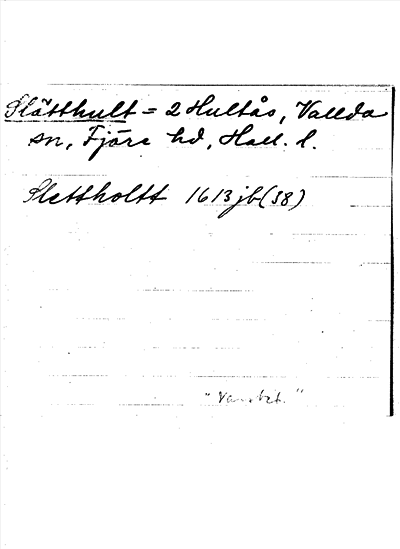 Slätthult = 2 Hultås, Vallda
sn, Fjäre hd, Hall. l.
Slettholtt 1613 jb (38)